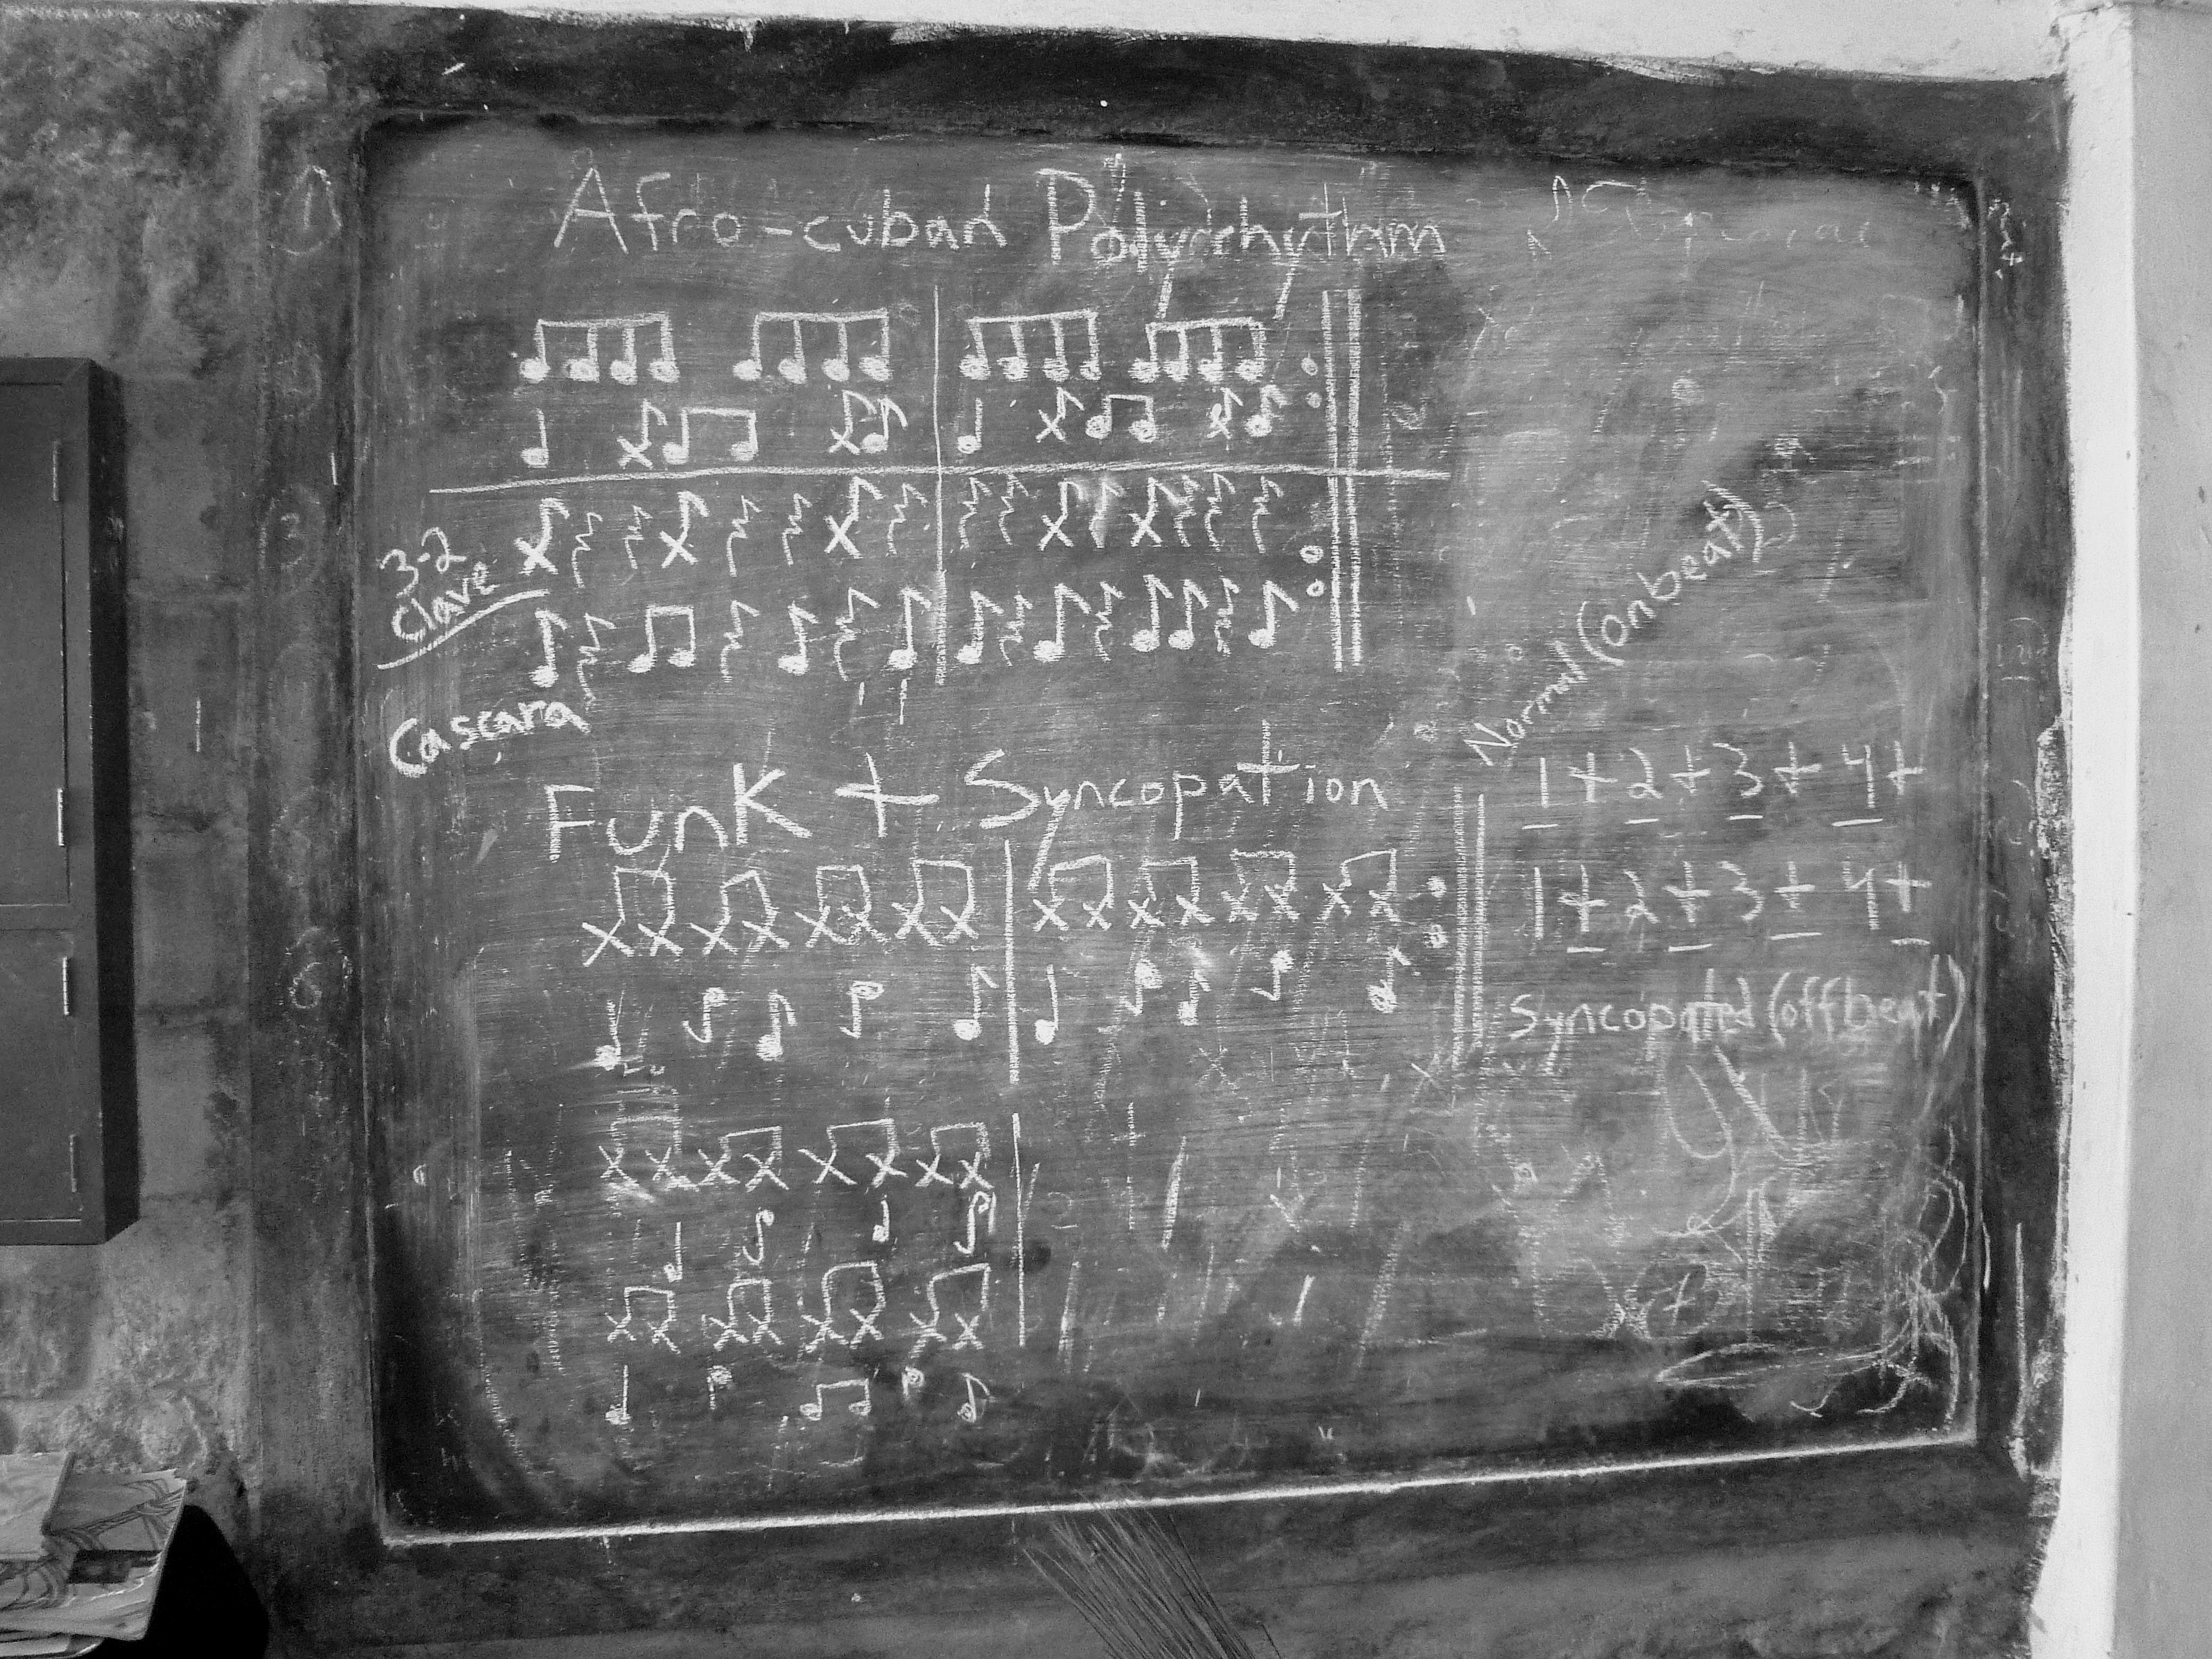 Afro-cuban Polyrhythm
3-2
clave
Cascara
Funk + Syncopation
Normal (onbeat)
1 + 2 + 3 + 4 +
1 + 2 + 3 + 4 +
Syncopated (offbeat)